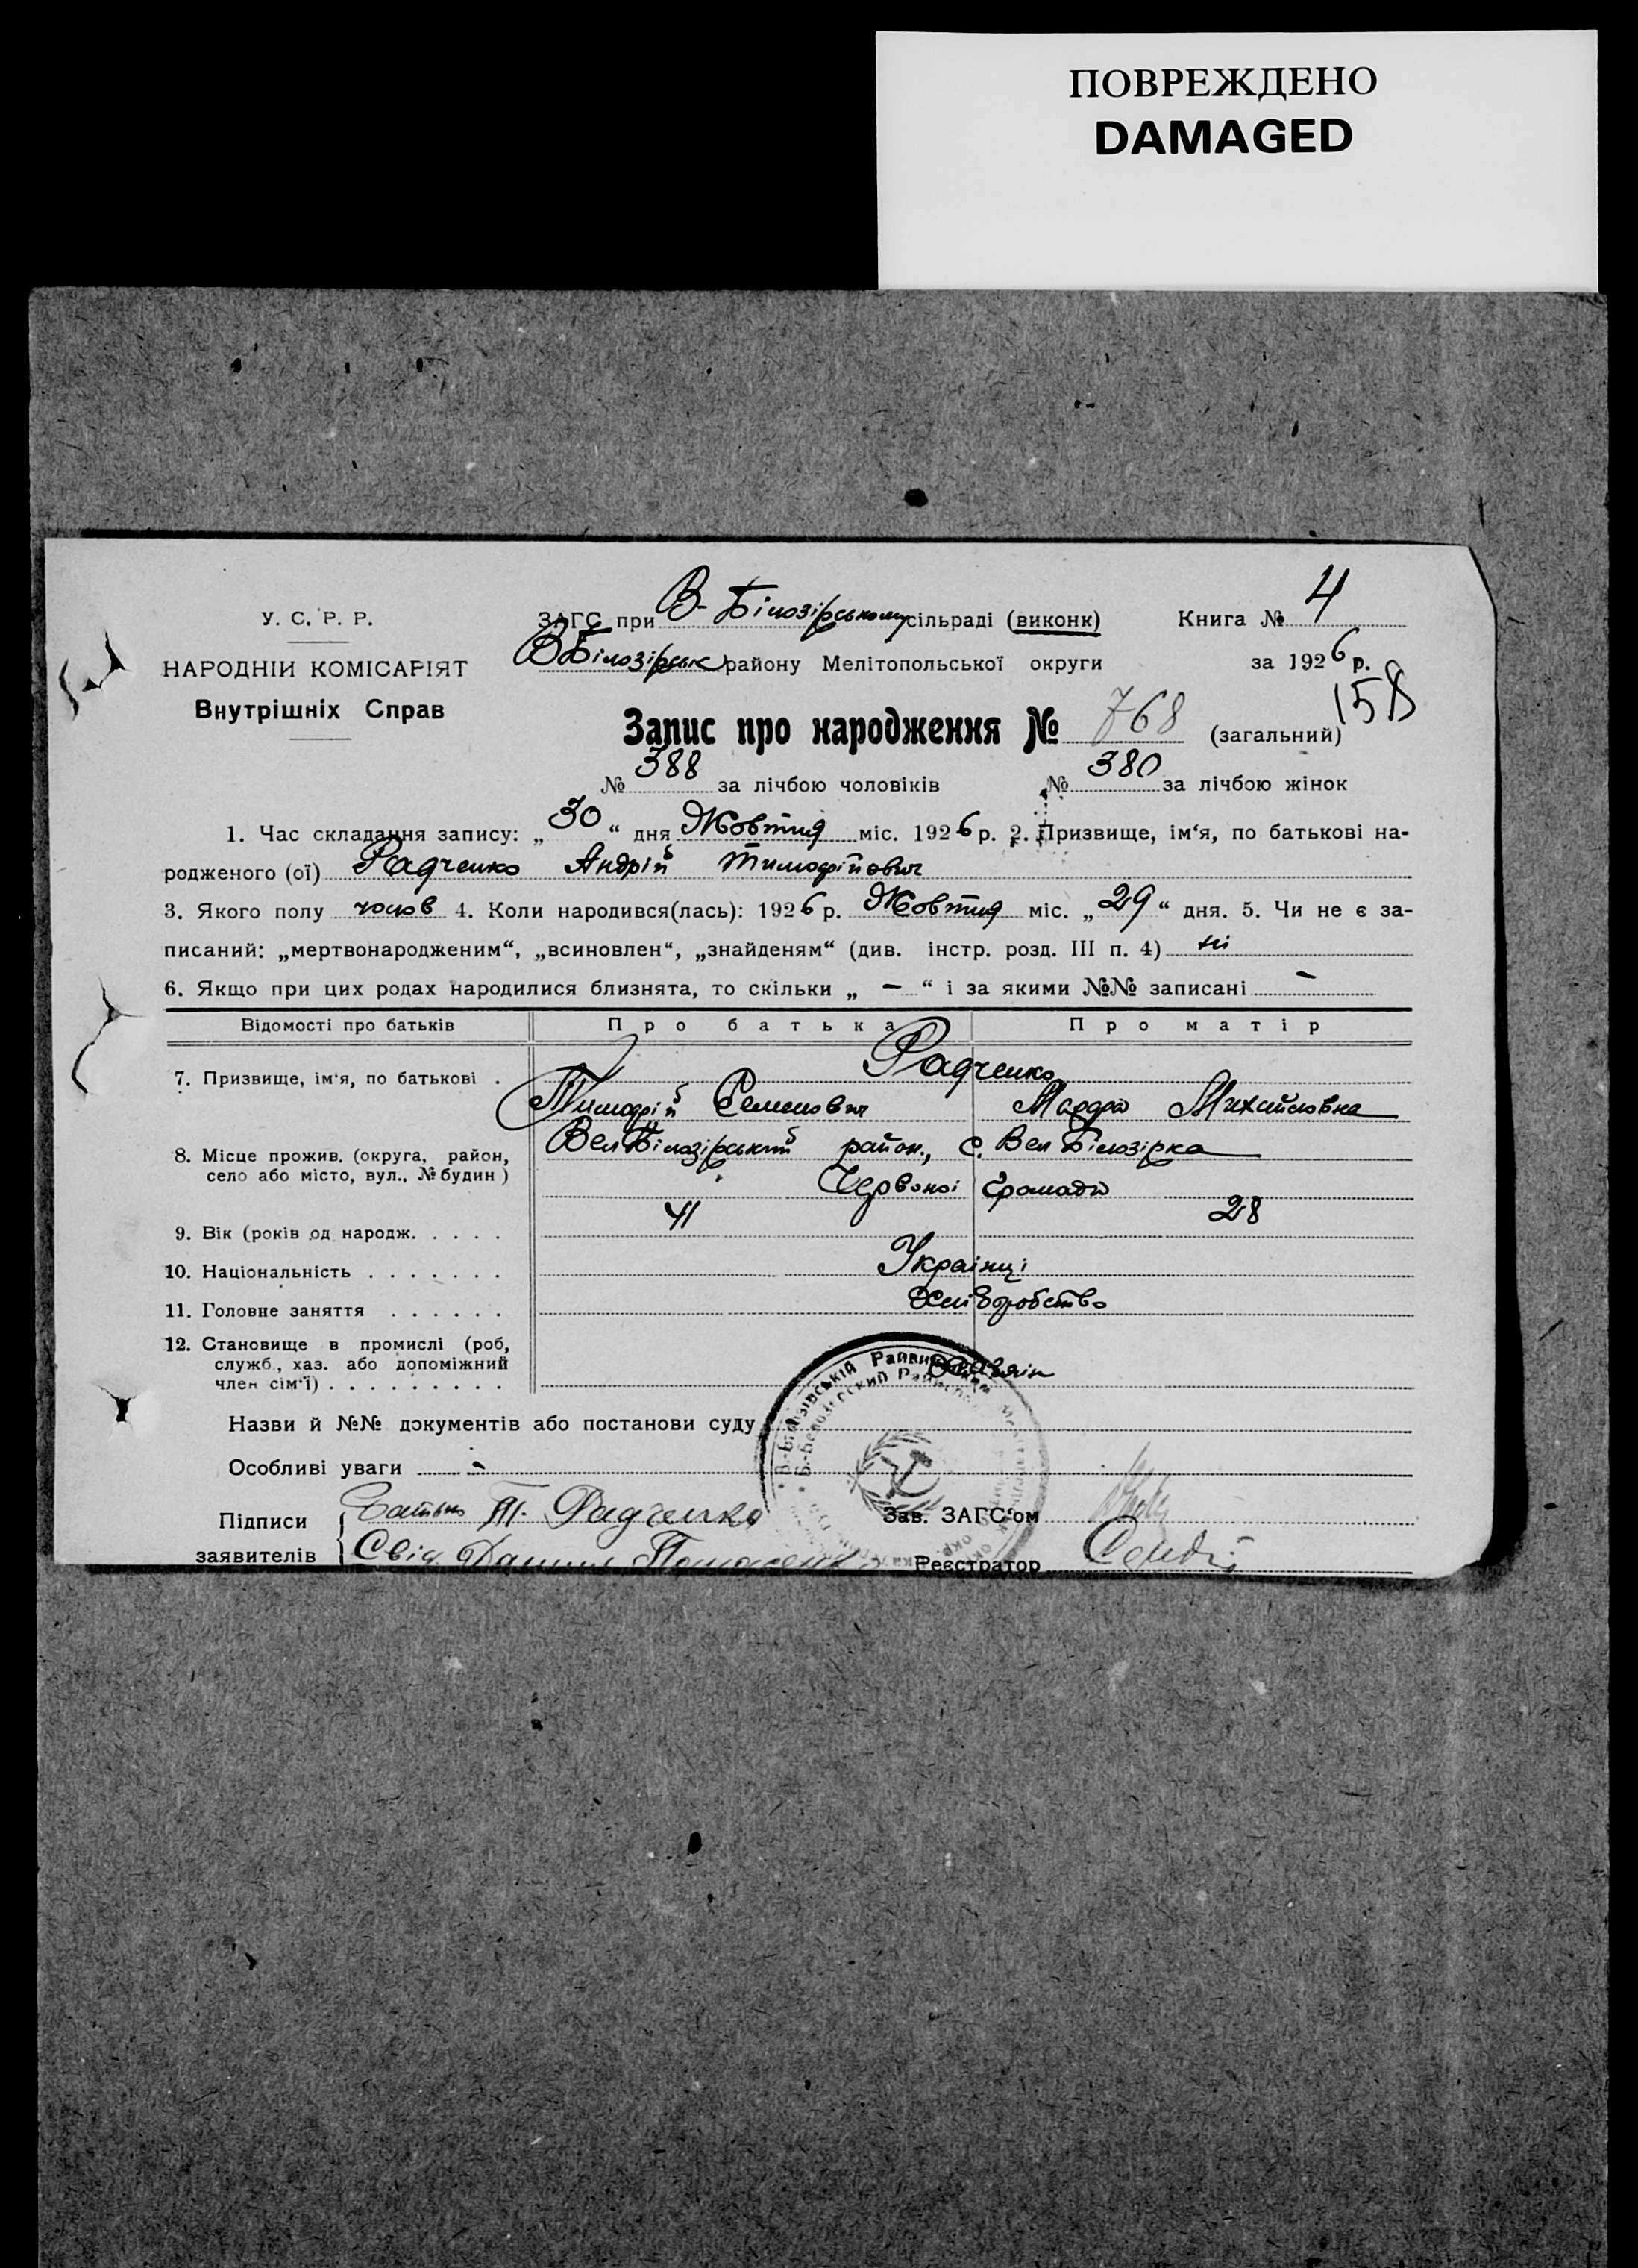 ПОВРЕЖДЕНО
DAMAGED
У. С. Р. Р.
НАРОДНІЙ КОМІСАРІЯТ
Внутрішніх Справ
ЗАГС при В-Білозірському сільраді (виконк)
ВБілозірськ району Мелітопольської округи
Книга № 4
за 1926 р.
158
Запис про народження № 768 (загальний)
№ 388 за лічбою чоловіків № 380 за лічбою жінок
1. Час складання запису: „30“ дня Жовтня міс. 1926 р. 2. Призвище, ім‘я, по батькові на-
родженого (ої) Радченко Андрій Тимофійович
3. Якого полу чолов 4. Коли народився(лась): 1926 р. Жовтня міс. „29“ дня. 5. Чи не є за-
писаний: „мертвонародженим“, „всиновлен“, „знайденям“ (див. інстр. розд. III п. 4) ні
6. Якщо при цих родах народилися близнята, то скільки „ — “ і за якими №№ записані —
Відомості про батьків Про батька Про матір
7. Призвище, ім‘я, по батькові . Радченко
Тимофій Семенович Марфа Михайловна
8. Місце прожив. (округа, район, село або місто, вул., № будин) Вел Білозірський район., с. Вел Білозірка
Червоної Громади
9. Вік (років од народж. . . . . 41 28
10. Національність . . . . . . . Українці
11. Головне заняття . . . . . . Хліборобство
12. Становище в промислі (роб,
служб., хаз. або допоміжний
член сім‘ї) . . . . . . . . .
Назви й №№ документів або постанови суду
Особливі уваги -
Підписи Батько Т. Радченко Зав. ЗАГС‘ом
заявителів Свід Данило Реєстратор